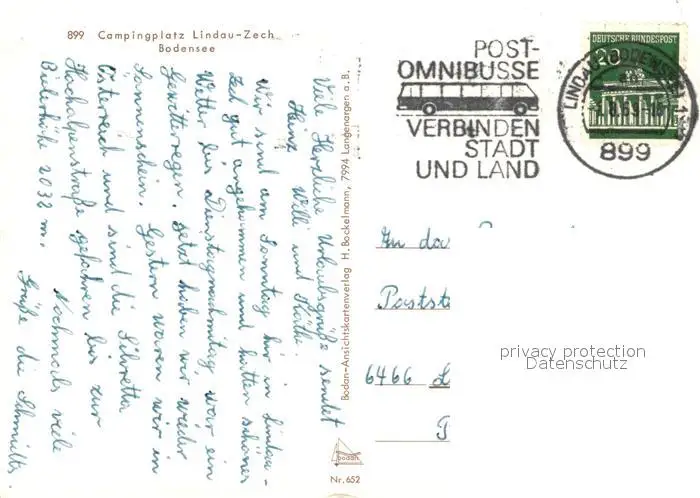 899 Campingplatz Lindau-Zech
Bodensee
Viele Herzliche Urlaubsgrüße sendet
Heinz Willi und Käthe.
Wir sind am Sonntag hir in Lindau-
Zech gut angekommen und hatten schönes
Wetter bis Dienstagnachmittag war ein
Gewitterregen. Jetzt haben wir wieder
Sonnenschein. Gestern waren wir in
Österreich und sind die Silvretta
Hochalpenstraße gefahren bis zur
Bielerhöhe 2032 m. Nochmals viele
Grüße die Schmidts
Bodan-Ansichtskartenverlag H. Bockelmann, 7994 Langenargen a. B.
bodan
Nr. 652
POST-
OMNIBUSSE
VERBINDEN
STADT
UND LAND
DEUTSCHE BUNDESPOST
LINDAU (BODENSEE) 1
899
An da
Postst
6466 L
privacy protection
Datenschutz